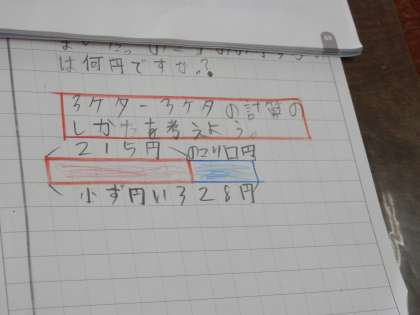 は何円ですか?
3ケター3ケタの計算の
しかたを考えよう。
215円 のこり口円
328円